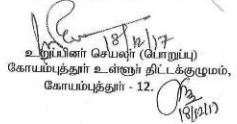 18/12/17
உறுப்பினர் செயலர் (பொறுப்பு)
கோயம்புத்தூர் உள்ளூர் திட்டக்குழுமம்,
கோயம்புத்தூர் - 12.
18/12/17